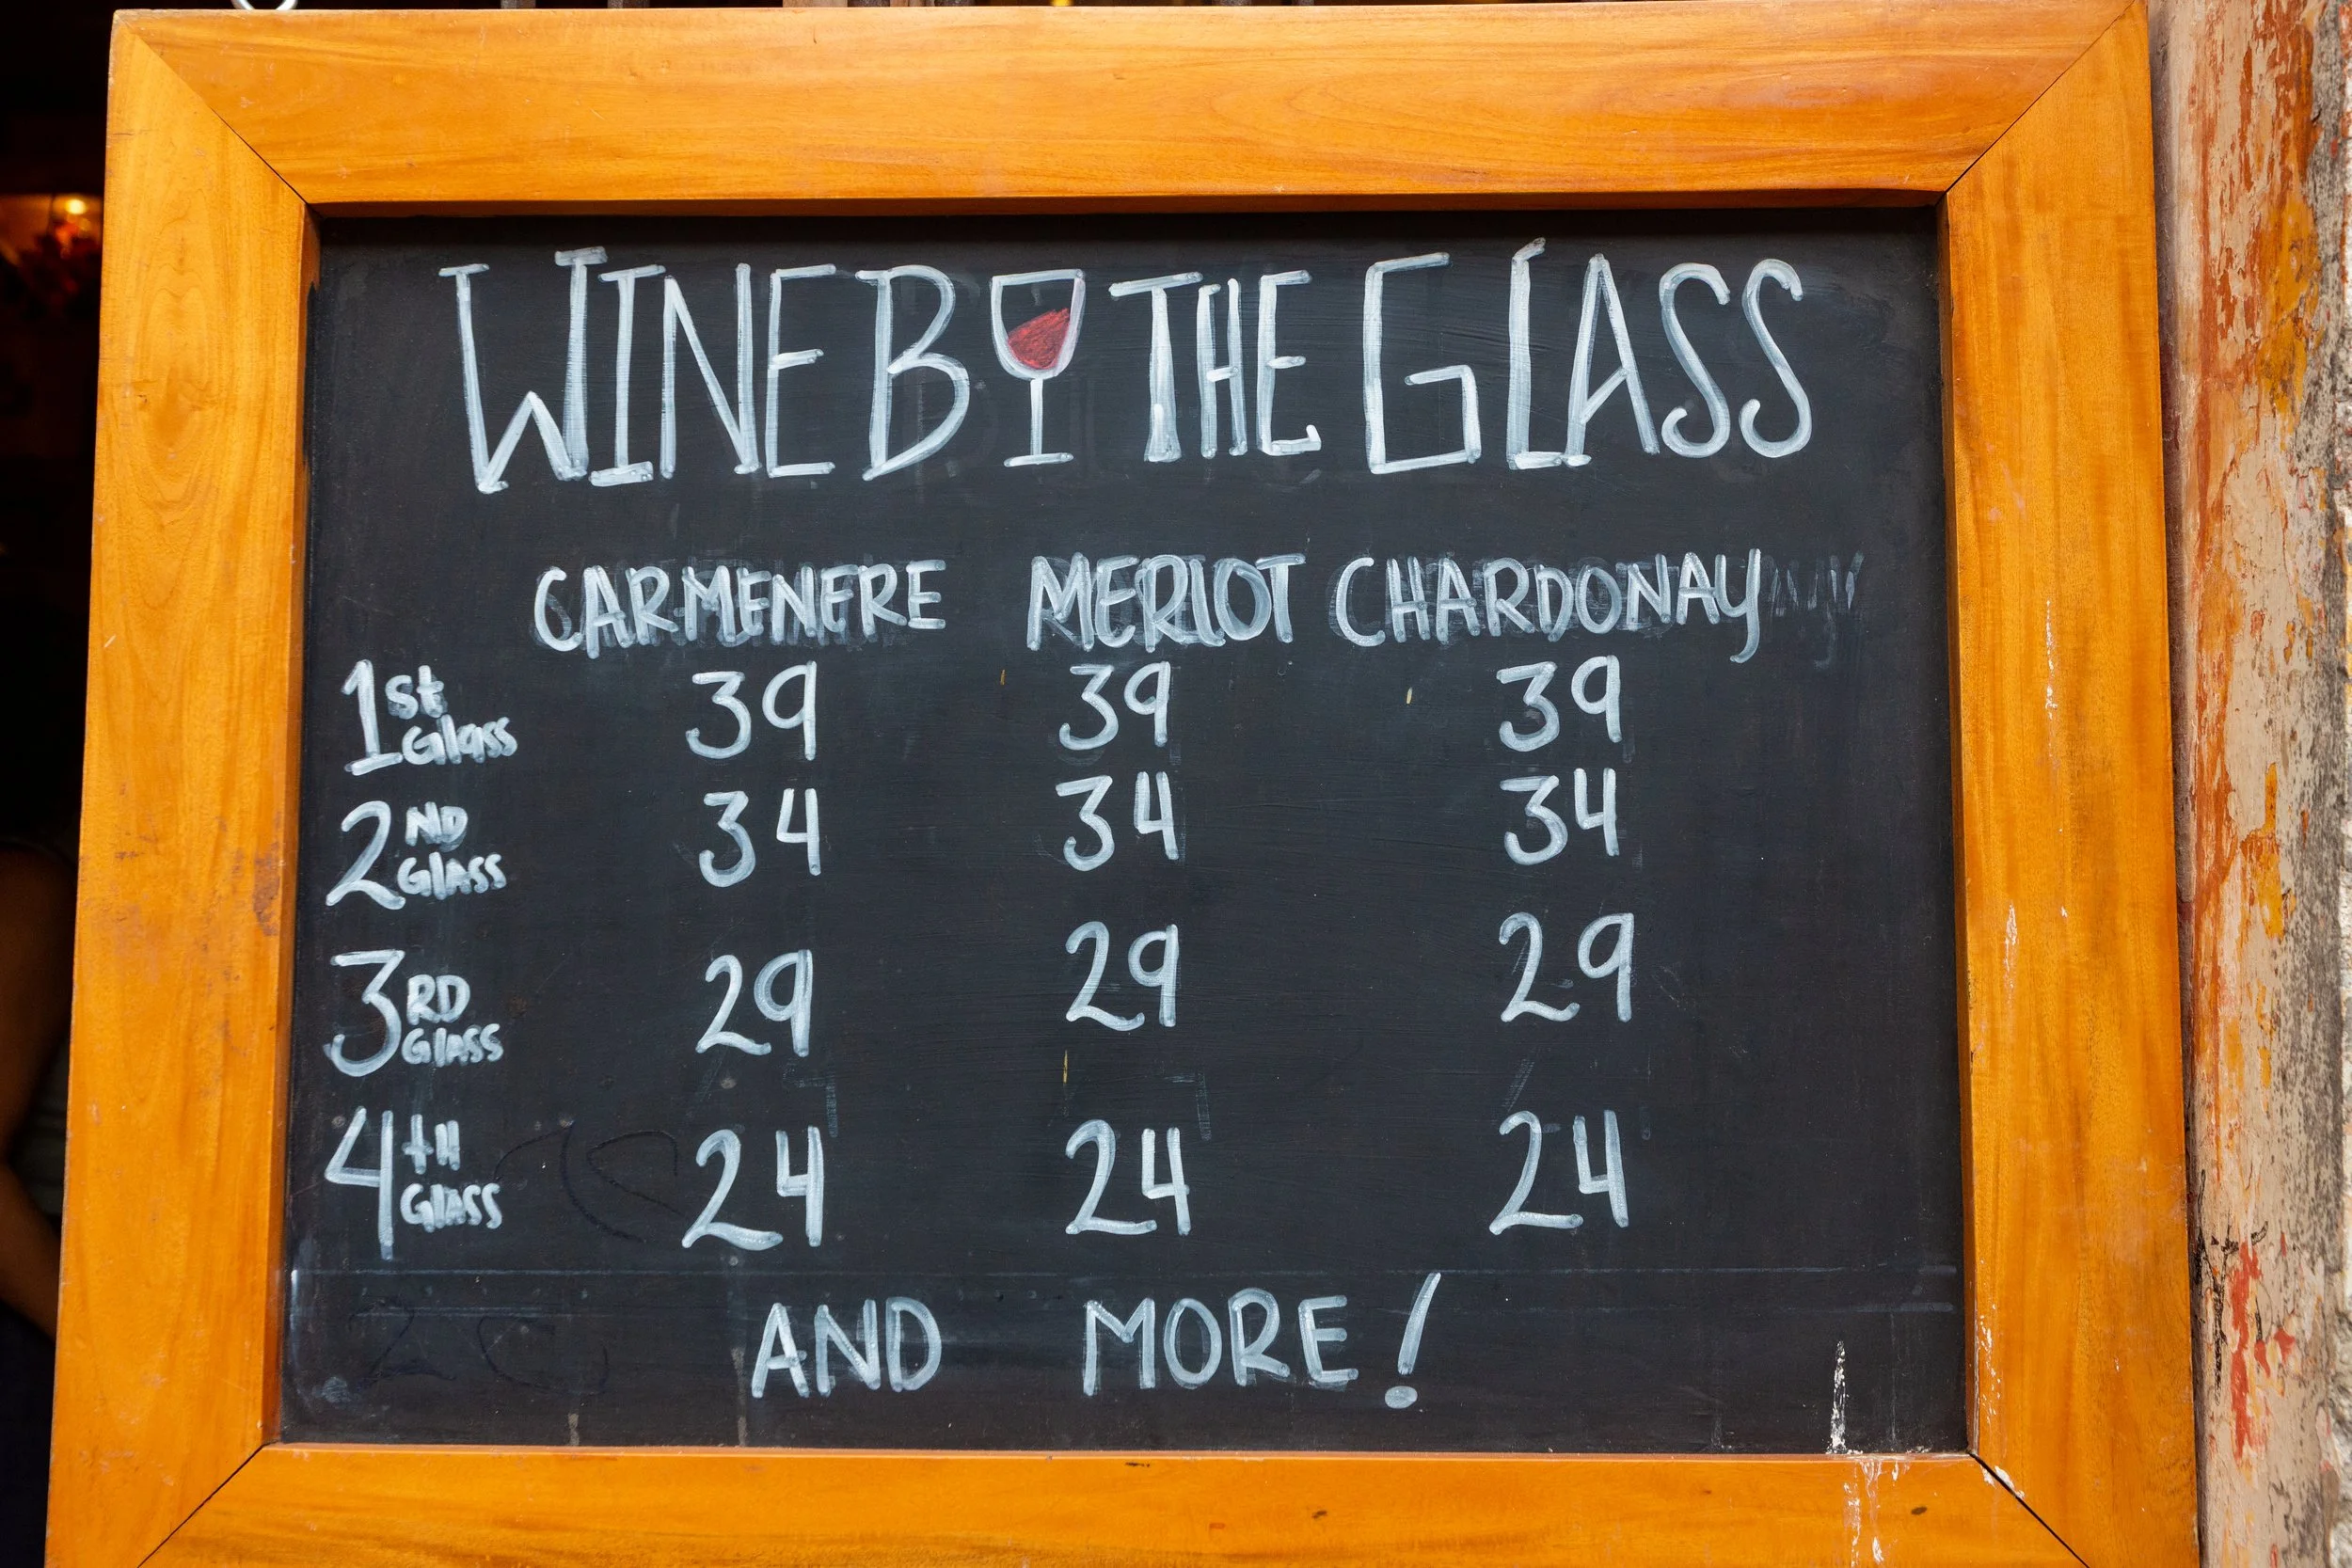 WINE BY THE GLASS
CARMENERE MERLOT CHARDONAY
1st Glass 39 39 39
2ND GLASS 34 34 34
3RD GLASS 29 29 29
4tH GLASS 24 24 24
AND MORE!